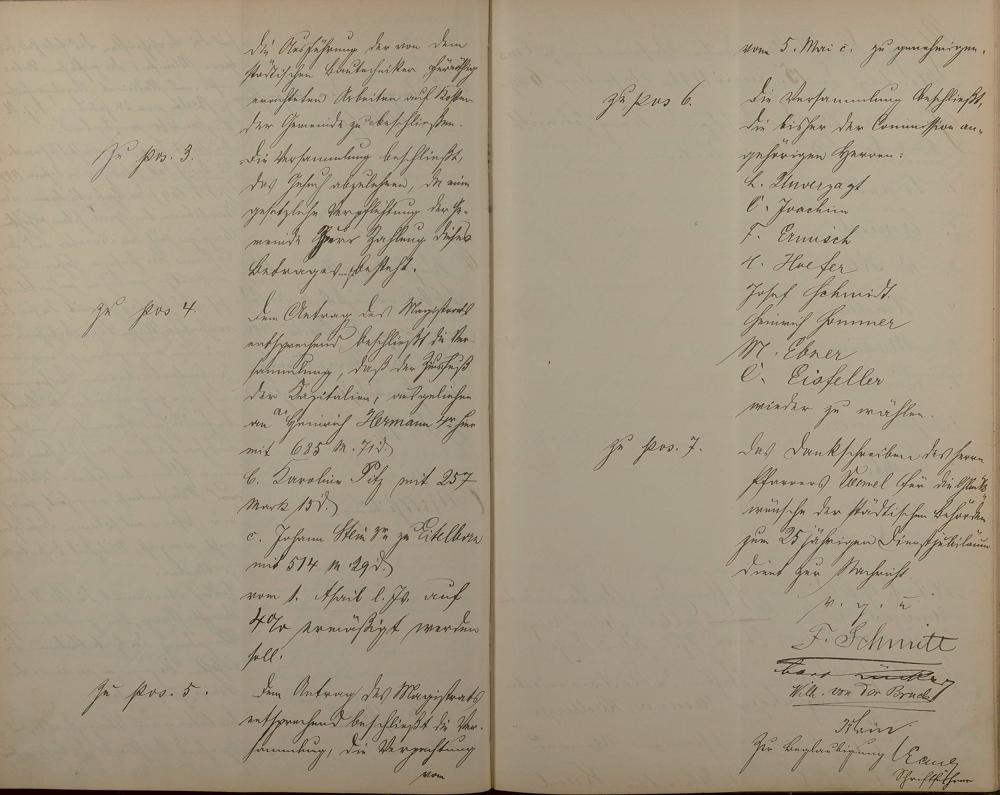 die Ausführung der von dem
städtischen Bautechniker
erachteten Arbeiten auf Kosten
der Gemeinde zu beschließen.
Zu pos. 3.
Die Versammlung beschließt,
das Gesuch abzulehnen, da eine
gesetzliche Verpflichtung der Ge-
meinde zur Zahlung dieses
Betrages besteht.
Zu pos 4.
Dem Antrag des Magistrats
entsprechend beschließt die Ver-
sammlung, daß der Zinsfuß
der Kapitalien, ausgeliehen
an a. Heinrich Hermann 4r hier
mit 685 M. 71 d.
b. Karoline Pitz mit 257
Mark 15 d.
c. Johann Stein zu Eitelborn
mit 514 M 29 d.
vom 1. April l. Js. auf
4% ermäßigt werden
soll.
Zu pos. 5.
Dem Antrag des Magistrats
entsprechend beschließt die Ver-
sammlung, die Verpachtung
vom
vom 5. Mai c. zu genehmigen.
Zu pos 6.
Die Versammlung beschließt,
die bisher der Commission an-
gehörigen Herren:
L. Unverzagt
C. Joachim
F. Ermisch
H. Hoefer
Josef Schmidt.
Heinrich Sommer
M. Ebner
C. Eisfeller
wieder zu wählen.
Zu pos. 7.
Das Dankschreiben des Herrn
Pfarrers Vömel für die Glück-
wünsche der städtischen Behörden
zum 25 jährigen Dienstjubiläum
dient zur Nachricht.
v. g. u
F. Schmitt
Wilh. von der Bruck
Klein
Zur Beglaubigung
Schriftführer